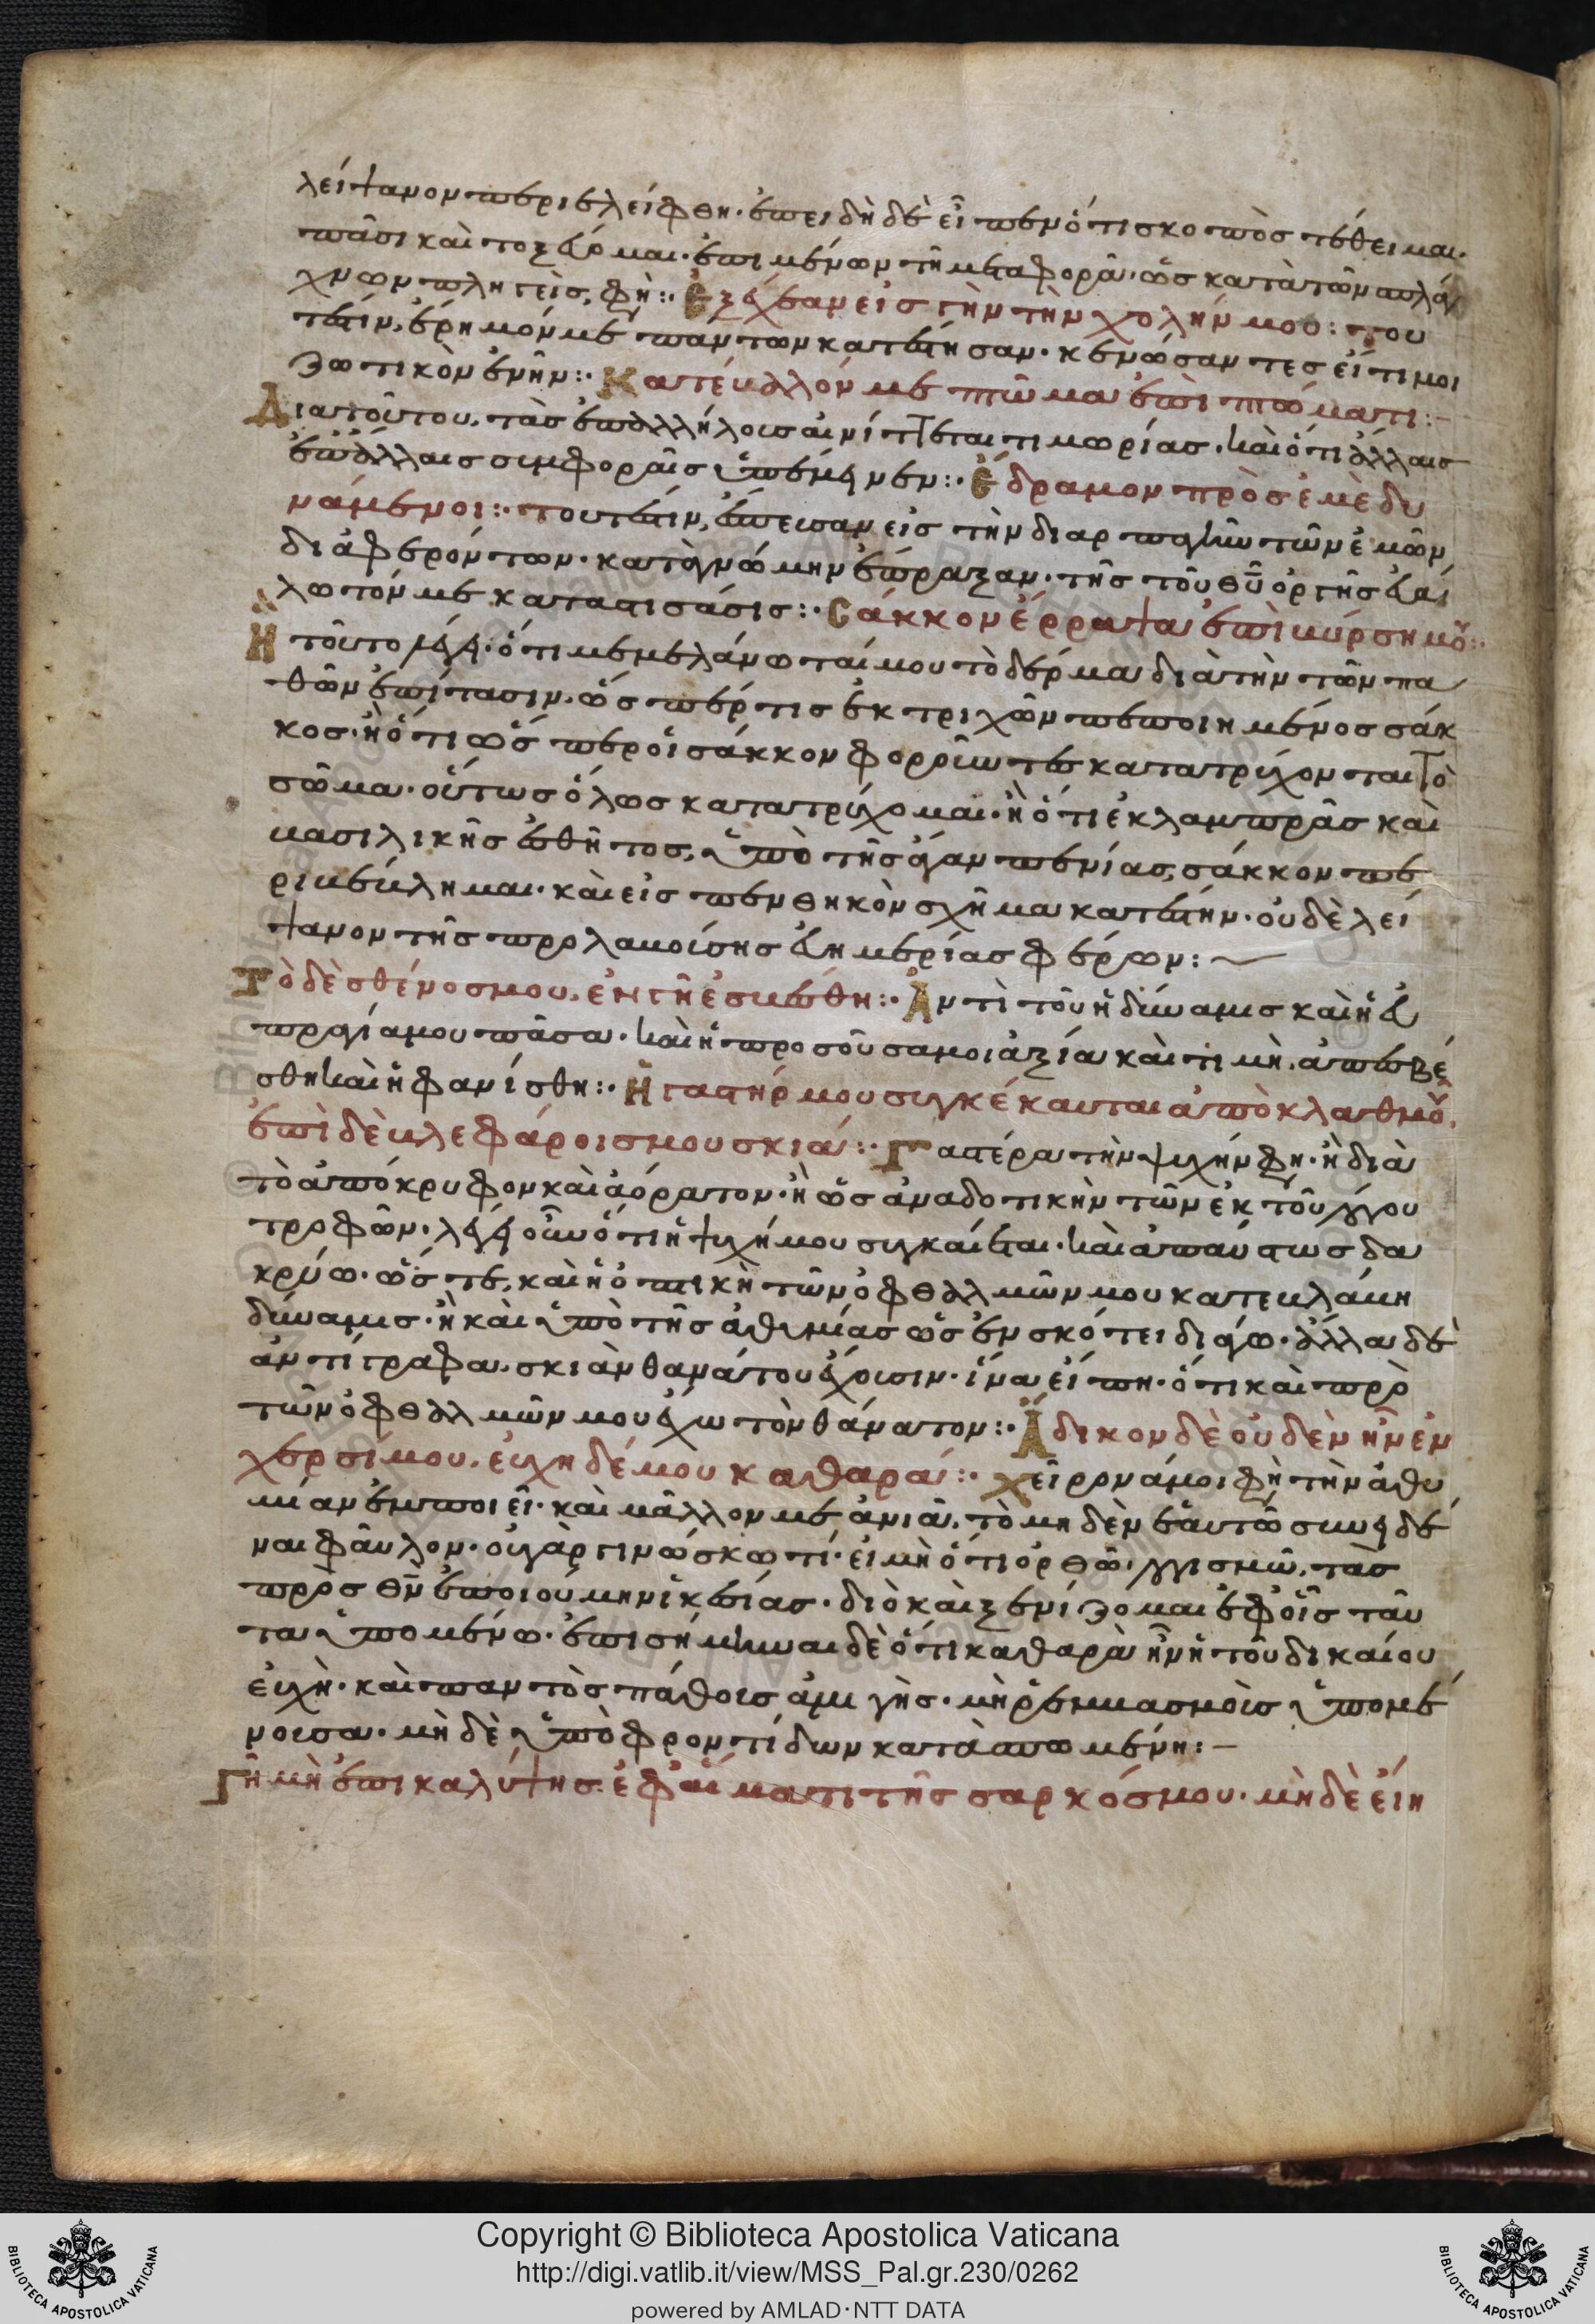 λείψανον περιελείφθη· ἐπειδὴ δὲ εἶπεν ὅτι σκοπὸς τέθειμαι
πᾶσι καὶ τοξεύομαι· ἐπιμένων τῆ μεταφορᾶ· ὡς κατὰ τῶν
πλητεὶς φὴ:· Ἐξέχεαν εἰς γὴν τὴν χολήν μου: του
τέστιν, ἔρημόν με πάντων κατέστησαν· κενώσαντες εἴ τί μοι
ζωτικὸν ἐνῆν:· Κατέβαλλόν με πτῶμα ἐπὶ πτώματι:–
Διὰ τούτου, τὰς ἐπαλλήλους αἰνίττεται τιμωρίας· καὶ ὅτι ἄλλαις
ἐπ᾽ ἄλλαις συμφοραῖς ὑπέμεινεν:· Ἔδραμον πρὸς ἐμὲ δυ
νάμενοι:· τουτέστιν, ἔσπευσαν εἰς τὴν διαρπαγὴν τῶν ἐμῶν
διαφερόντων· κατὰ γνώμην ἔπραξαν· τῆς τοῦ θῦ ὀργῆς εὐά
λωτόν με καταστησάσης:· Σάκκον ἔρραψα ἐπὶ βύρσης μου:·
Ἢ τοῦτο λέγει· ὅτι μεμελάνωταί μου τὸ δέρμα διὰ τὴν τῶν πα
θῶν ἐπίτασιν· ὥσπερ τις ἐκ τριχῶν πεποιημένος σάκ
κος· ἢ ὅτι ὥσπερ οἱ σάκκον φοροῦντες κατατρύχονται τὸ
σῶμα· οὕτως ὅλως κατατρύχομαι· ἢ ὅτι ἐκ λαμπρᾶς καὶ
βασιλικῆς ἐσθῆτος, ὑπὸ τῆς ἄγαν πενίας, σάκκον πε
ριβέβλημαι· καὶ εἰς πενθηκὸν σχῆμα κατέστην· οὐδὲ λεί
ψανον τῆς προλαβούσης εὐημερίας φέρων:
Τὸ δὲ σθένος μου, ἐν γῆ ἐσβέσθη:· Ἀντὶ τοῦ ἡ δύναμις καὶ ἡ εὐ
πραγία μου πᾶσα· καὶ ἡ προσοῦσα μοι ἀξία καὶ τιμὴ, ἀπέσβέ
σθη καὶ ἠφανίσθη:· Ἡ γαστήρ μου συγκέκαυται ἀπὸ κλαυθμοῦ,
ἐπὶ δὲ βλεφάροις μου σκιά:· Γαστέρα τὴν ψυχήν φη· ἢ διὰ
τὸ ἀπόκρυφον καὶ ἀόρατον· ἢ ὡς ἀναδοτικὴν τῶν ἐκ τοῦ λόγου
τροφῶν· λέγει οὖν ὅτι ἡ ψυχή μου συγκαίεται· καὶ ἀπαύστως δα
κρύω· ὥστε, καὶ ἡ ὀπτικὴ τῶν ὀφθαλμῶν μου κατεβλάβη
δύναμις· ἢ καὶ ὑπὸ τῆς ἀθυμίας ὡς ἐν σκότει διάγω· ἄλλα δὲ
ἀντίγραφα, σκιὰν θανάτου ἔχουσιν· ἵνα εἴπη· ὅτι καὶ πρὸ
τῶν ὀφθαλμῶν μου ἔχω τὸν θάνατον:· Ἄδικον δὲ οὐδὲν ἦν ἐν
χερσί μου, εὐχὴ δέ μου καθαρά:· χείρονά μοι φὴ τὴν ἀθυ
μίαν ἐμποιεῖ· καὶ μᾶλλον με ἀνιᾶ, τὸ μηδὲν ἑαυτῶ συνειδέ
ναι φαῦλον· οὐ γὰρ γινώσκω τί· εἰ μὴ ὅτι ὀρθῶ λογισμῶ, τὰς
πρὸς θν̄ ἐποιούμην ἱκεσίας· διὸ καὶ ξενίζομαι ἐφ᾽ οἷς ταῦ
τα ὑπομένω· ἐπισήμηναι δὲ ὅτι καθαρὰ ἦν ἡ τοῦ δικαίου
εὐχὴ· καὶ παντὸς πάθους ἀμιγὴς· μὴ ῥεμβασμοὺς ὑπομέ
νουσα· μὴ δὲ ὑπὸ φροντίδων κατασπωμένη:–
Γῆ μὴ ἐπικαλύψης ἐφ᾽ αἵματι τῆς σαρκός μου· μὴ δὲ εἴη
Copyright © Biblioteca Apostolica Vaticana
http://digi.vatlib.it/view/MSS_Pal.gr.230/0262
powered by AMLAD·NTT DATA